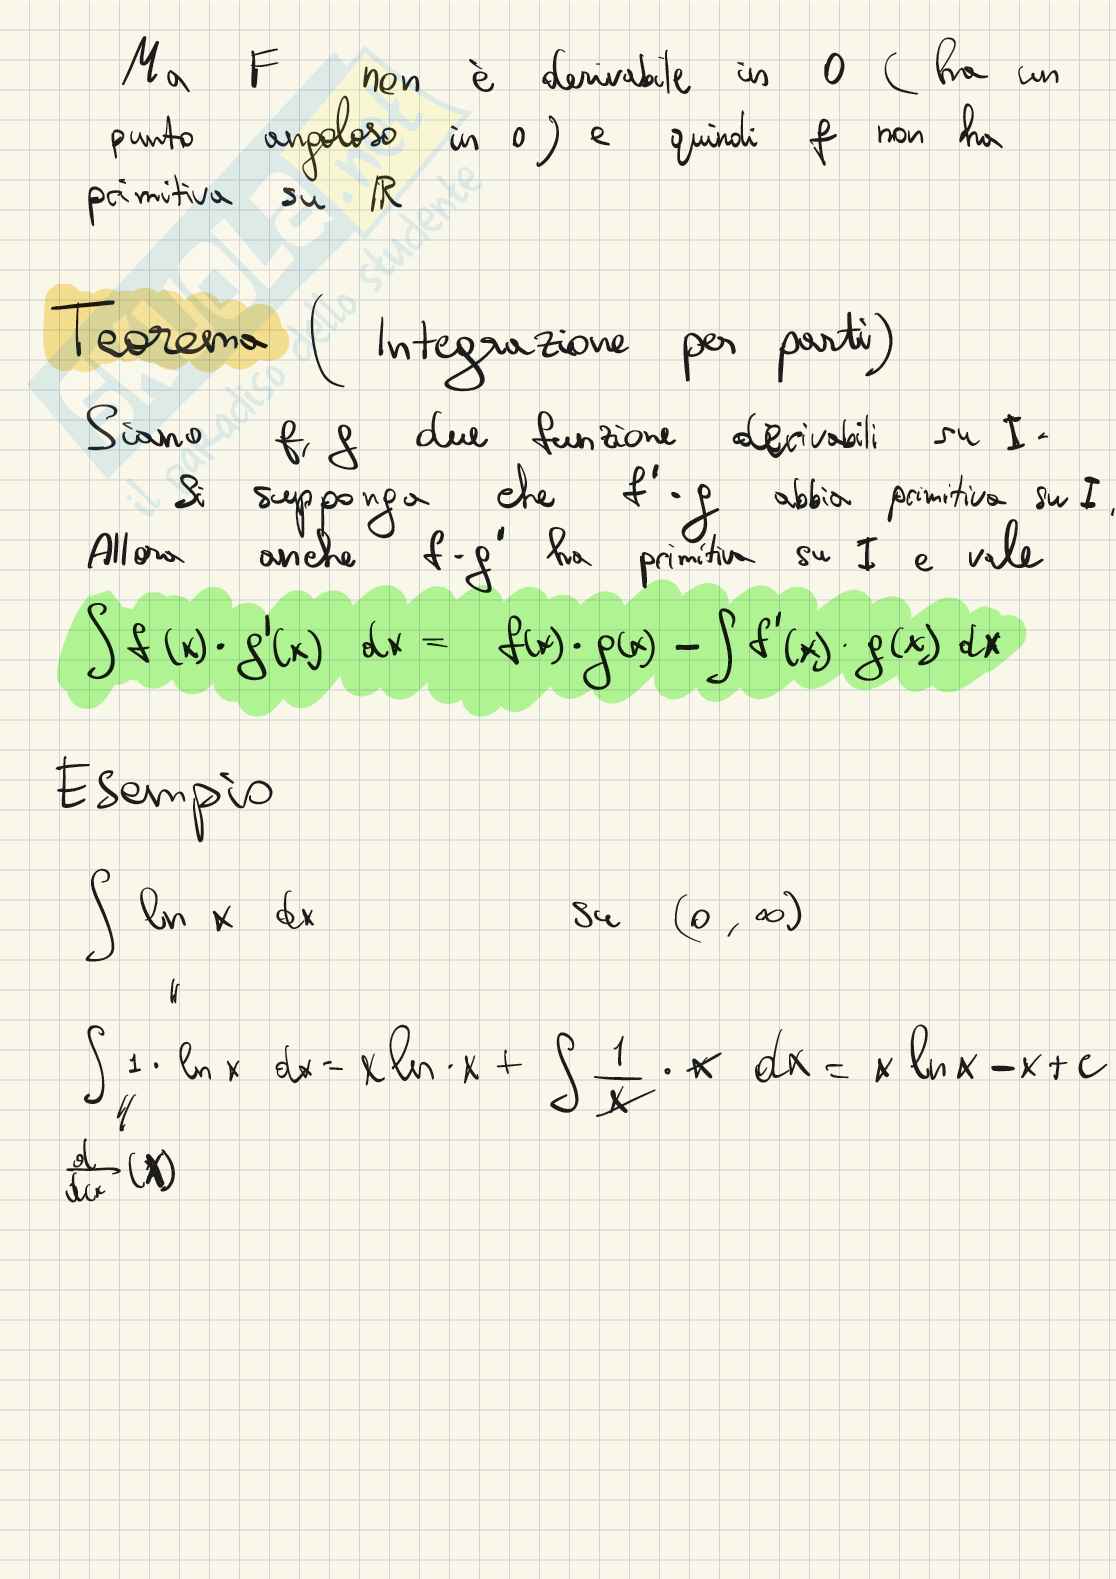 Ma F non è derivabile in 0 (ha un
punto angoloso in 0) e quindi f non ha
primitiva su ℝ
SKUOLA.net
il paradiso dello studente
Teorema (Integrazione per parti)
Siano f, g due funzione derivabili su I.
Si supponga che f'·g abbia primitiva su I,
Allora anche f·g' ha primitiva su I e vale
∫ f(x)·g'(x) dx = f(x)·g(x) - ∫ f'(x)·g(x) dx
Esempio
∫ ln x dx su (0, ∞)
"
∫ 1·ln x dx = x ln·x + ∫ 1/x · x dx = x ln x - x + c
"
d/dx (x)